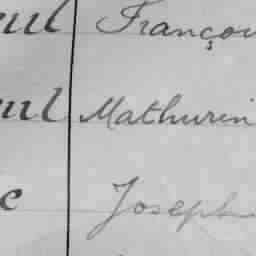 eul Françoi
eul Mathurin
c Joseph